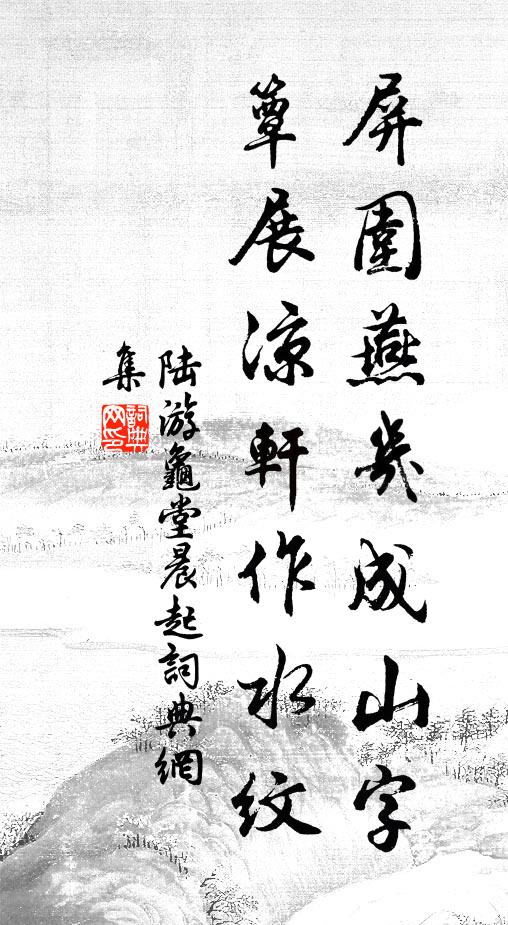 屏圍燕幾成山字
簟展凉軒作水紋
陸游龜堂晨起詞典網
集
詞典网印